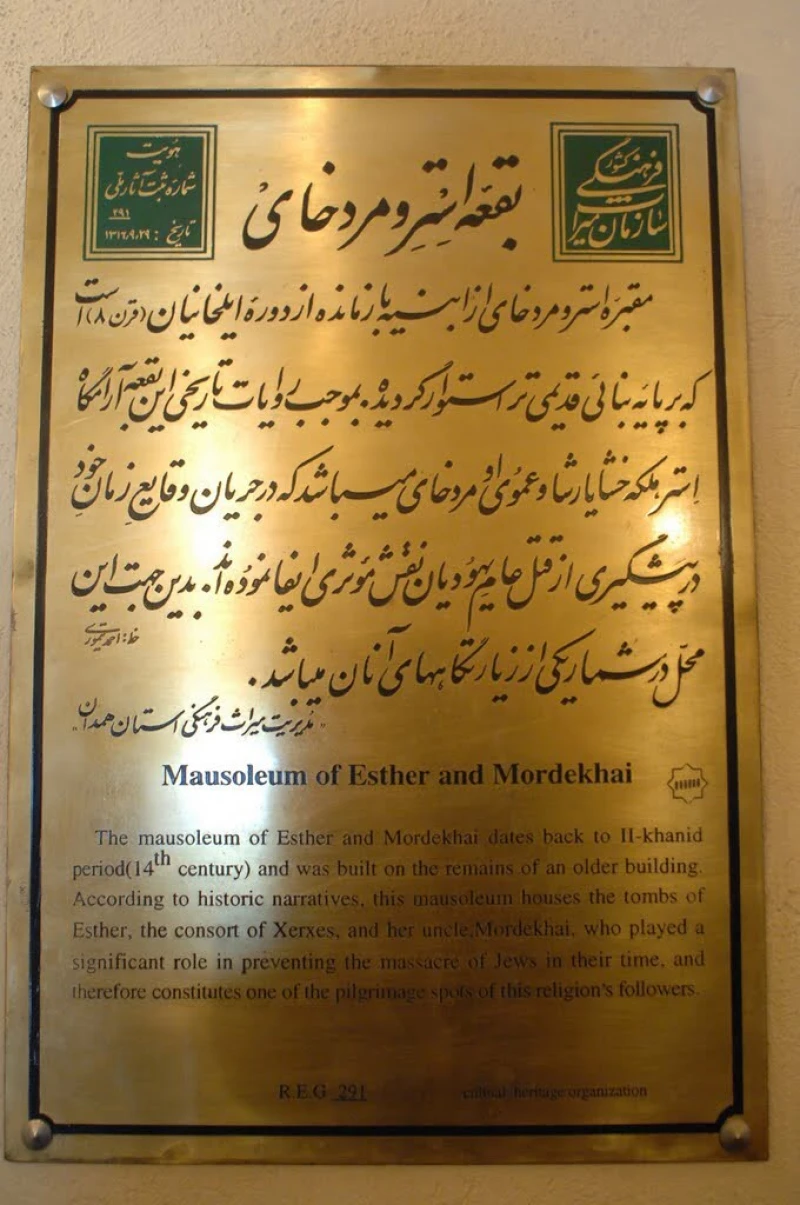 هویت
شماره ثبت آثار ملی
۲۹۱
تاریخ : ۱۳۱۲٫۹٫۲۹
سازمان میراث
فرهنگی کشور
بقعه اِستِر و مردخای
مقبره استر و مردخای از ابنیه بازمانده از دوره ایلخانیان (قرن ۸) است
که بر پایه بنائی قدیمی تر استوار گردیده. بموجب روایات تاریخی این بقعه آرامگاه
اِستر ملکه خشایارشا و عموی او مردخای میباشد که در جریان وقایع زمانِ خود
در پیشگیری از قتل عامِ یهودیان نقش مؤثری ایفا نموده اند. بدین جهت این
خط: احمد تیموری
محلّ در شمار یکی از زیارتگاههای آنان میباشد.
"مدیریت میراث فرهنگی استان همدان"
Mausoleum of Esther and Mordekhai
The mausoleum of Esther and Mordekhai dates back to II-khanid
period(14th century) and was built on the remains of an older building.
According to historic narratives, this mausoleum houses the tombs of
Esther, the consort of Xerxes, and her uncle,Mordekhai, who played a
significant role in preventing the massacre of Jews in their time, and
therefore constitutes one of the pilgrimage spots of this religion's followers.
R.E.G 291
heritage organization